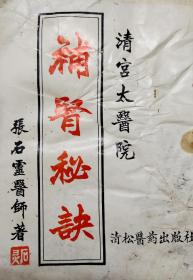 清宮太醫院
補腎秘訣
張石靈醫師著
清松醫药出版社